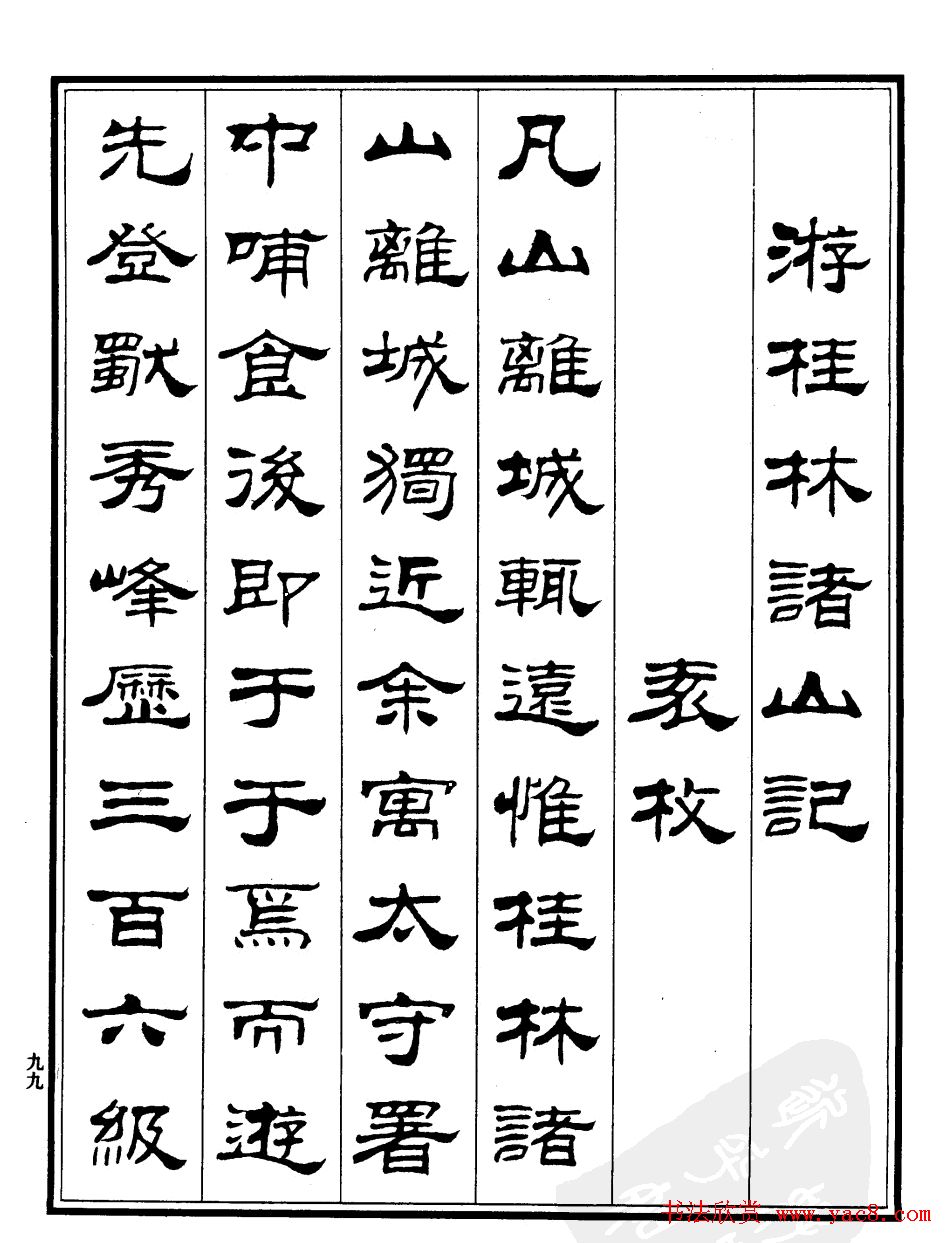 游桂林諸山記
袁枚
凡山離城輒遠惟桂林諸
山離城獨近余寓太守署
中哺食後即于于焉而遊
先登獨秀峰歷三百六級
九九
书法欣赏 www.yac8.com